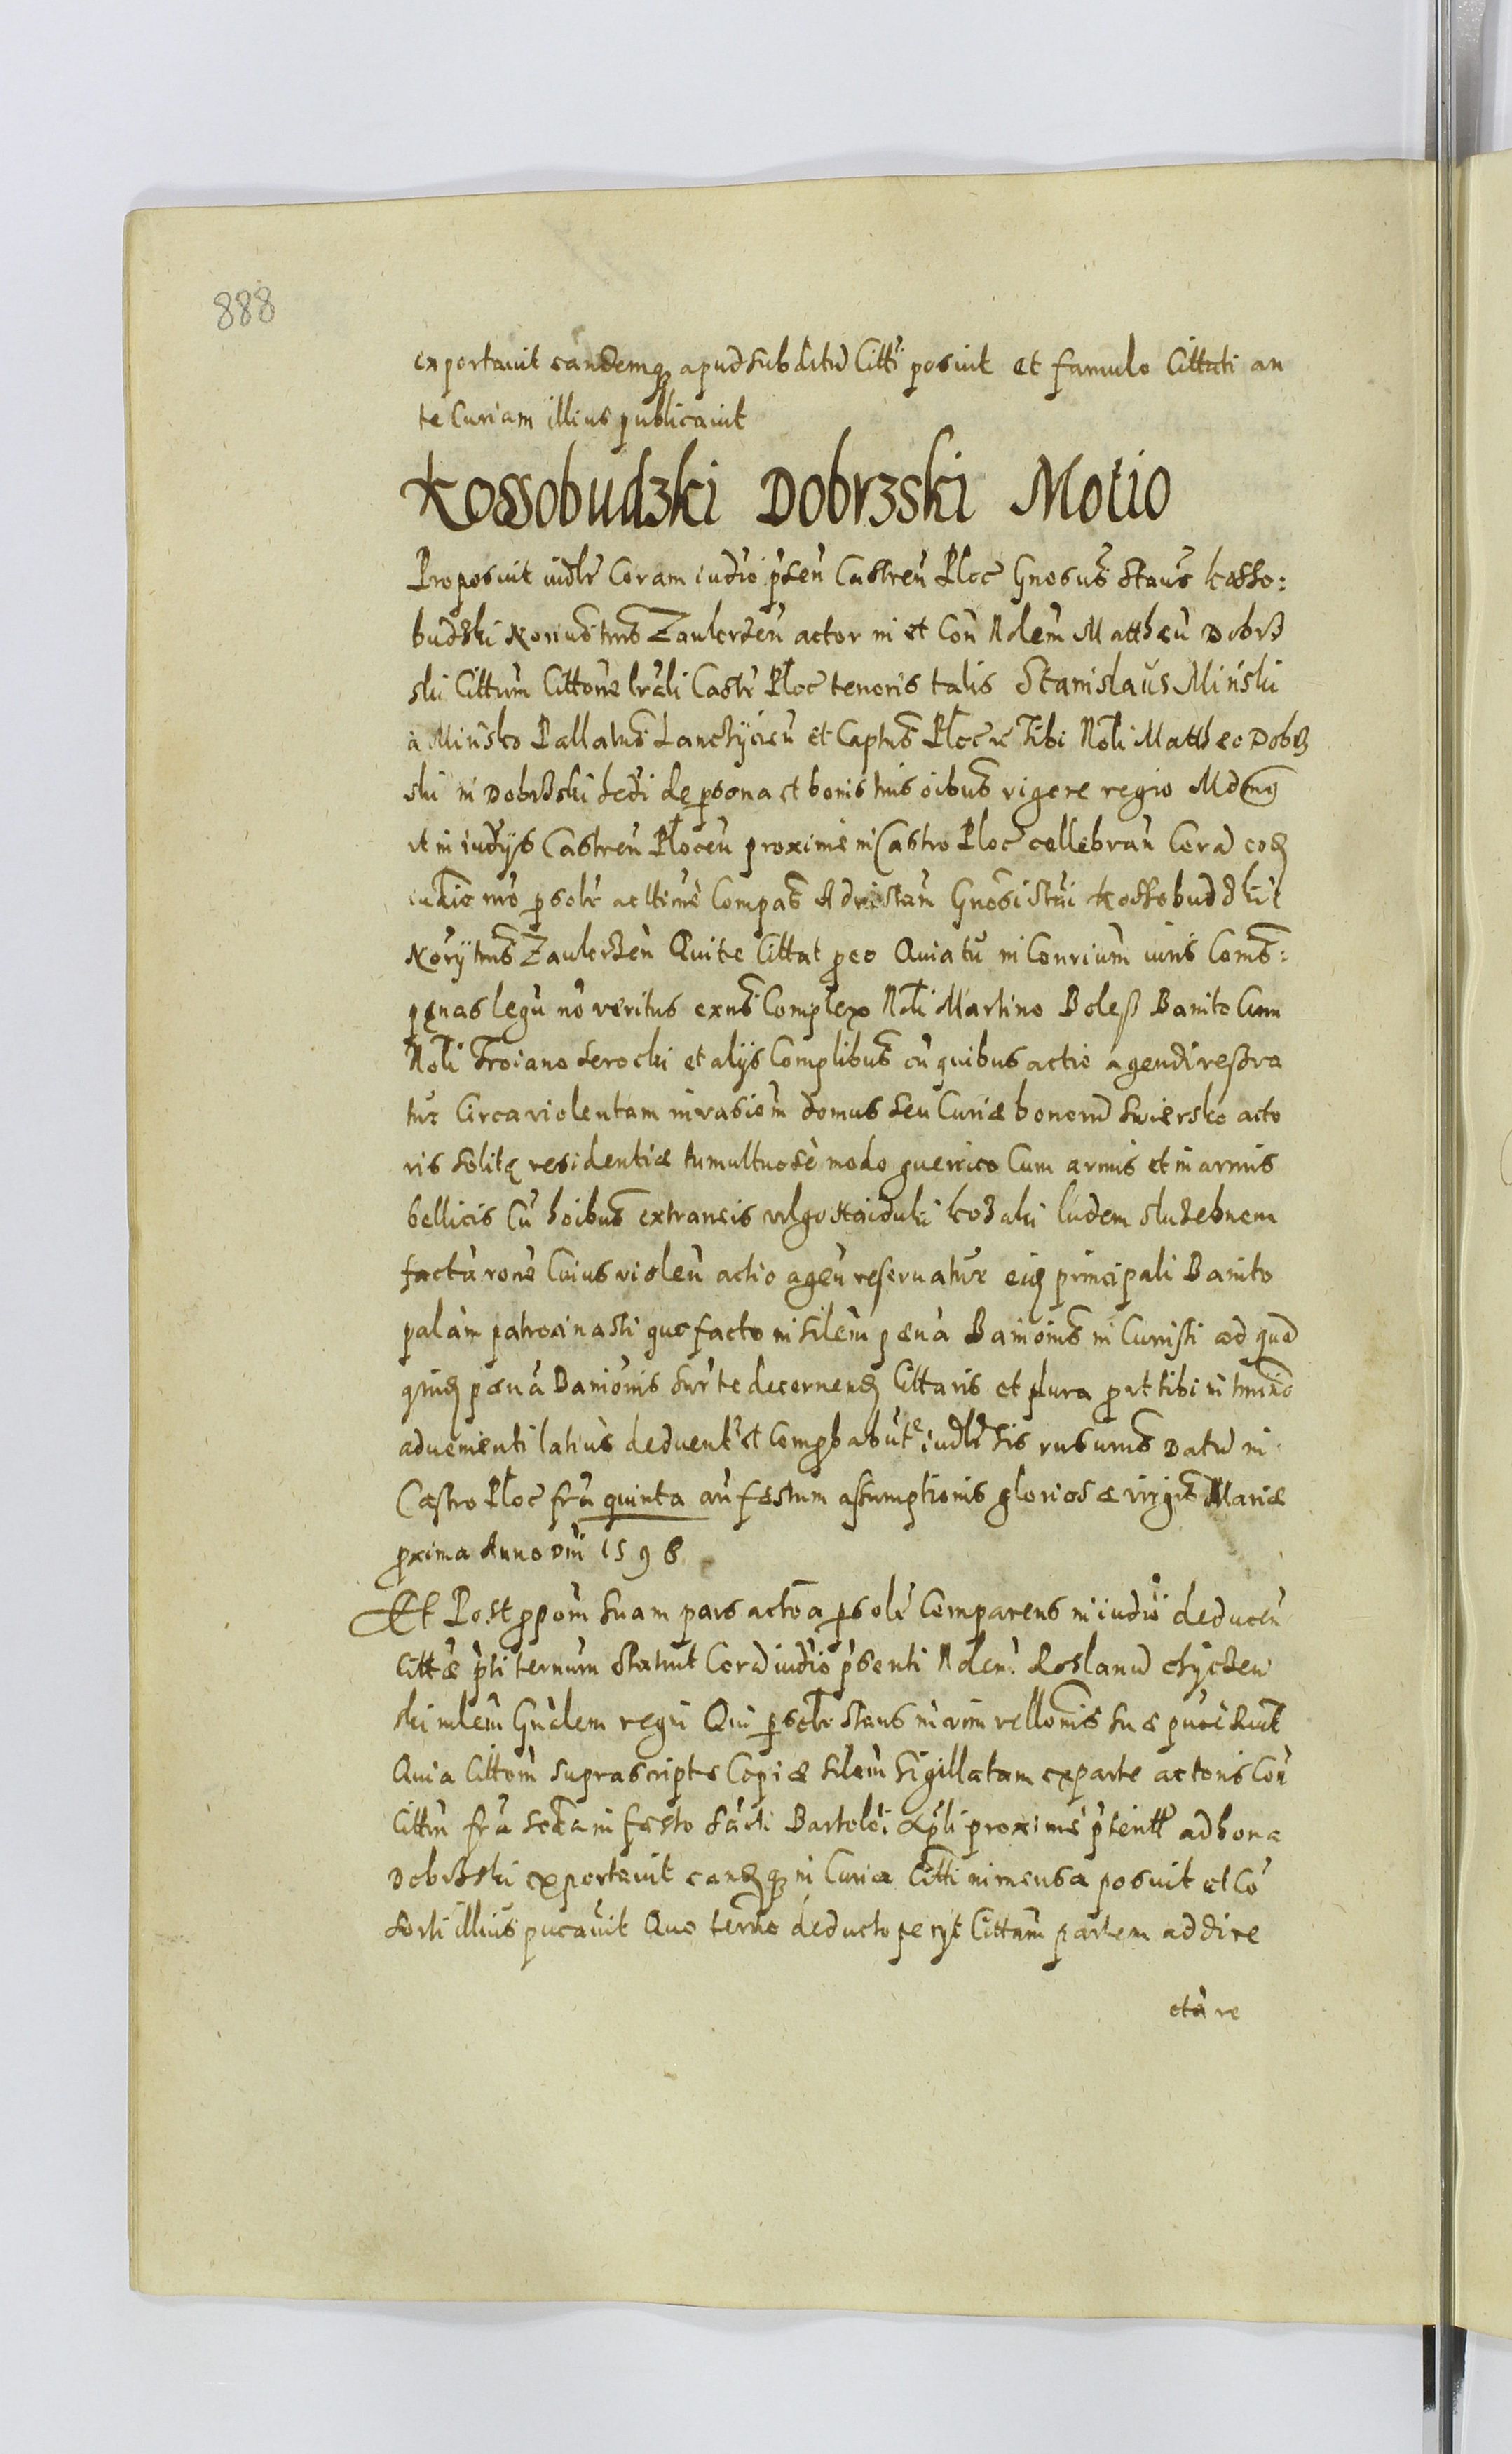 888
exportauit eandemq apud subditū Citti posuit et famulo Cittati an
te Curiam illius publicauit
Kossobudzki Dobrzski Motio
Proposuit iudlr Coram iudio psen Castren Ploc Gnosus Staus kosso:
budzki Noriustrus Zaulerzen actor in et Con Nolem Mattheū Dobrz
ski Cittum Cittone lrali Castr Ploc tenoris talis Stanislaus Minski
a Minsko Pallatus Lanczycien et Captus Ploc Tibi Noli Mattheo Dobrz
ski in Dobrzski hedi de psona et bonis tuis oibus vigore regio Mdmg
vt in iudijs Castren Plocen proxime in Castro Ploc cellebran Corā eoz
iudio nro psolr ac ttime Compas Ad instam Gnosi Stai Kossobudzki
Norijtrus Zaulerzen Qui te Cittat peo Quia tu in Conrium iuris Coms:
pęnas legū no veritus exns Complex Noli Martino Boless Banito Cum
Noli Troiano Serocki et alijs Complibus cū quibus actio agendi resrua
tur Circa violentam inuasiom domus seu Curiæ bonorū Swiersko acto
ris solitę residentiæ tumultuose modo guerrico Cum armis et in armis
bellicis Cū hoibus extraneis vulgo Haiduki kozaki ludem sluzebnem
factā rone Cuius violen actio agen reseruatur eiq principali Banito
palam patrocinasti quo facto in silem pænā Banionis in Curristi ad quā
quiq pænā Banionis supr te decernenq Cittaris et plura put tibi in trmino
aduenienti latius deducentr et Comprobabūtr iudlr sis rusurus Datū in
Castro Ploc fra quinta an festum assumptionis gloriosæ virgis Mariæ
pxima Anno Dni 1598
Et Post ppom suam pars actoa psolr Comparens in iudio deducen
Cittæ psti ternum statuit Corā iudio psenti Nolem Roslanū chyczew
ski mlem Gnalem regni Qui psolr stans in vim rellonis suæ puce Recit
Quia Cittom suprascripte Copiæ silem Sigillatam ex parte actoris Con
Cittm fra scda in festo Sacti Bartolei Apli proxime pteritt ad bona
Dobrzski exportauit eanqq in Curia Citti in mensa posuit et Co
sorti illius pucauit Quo terno deducto petijt Cittum partem ad dire
ctare